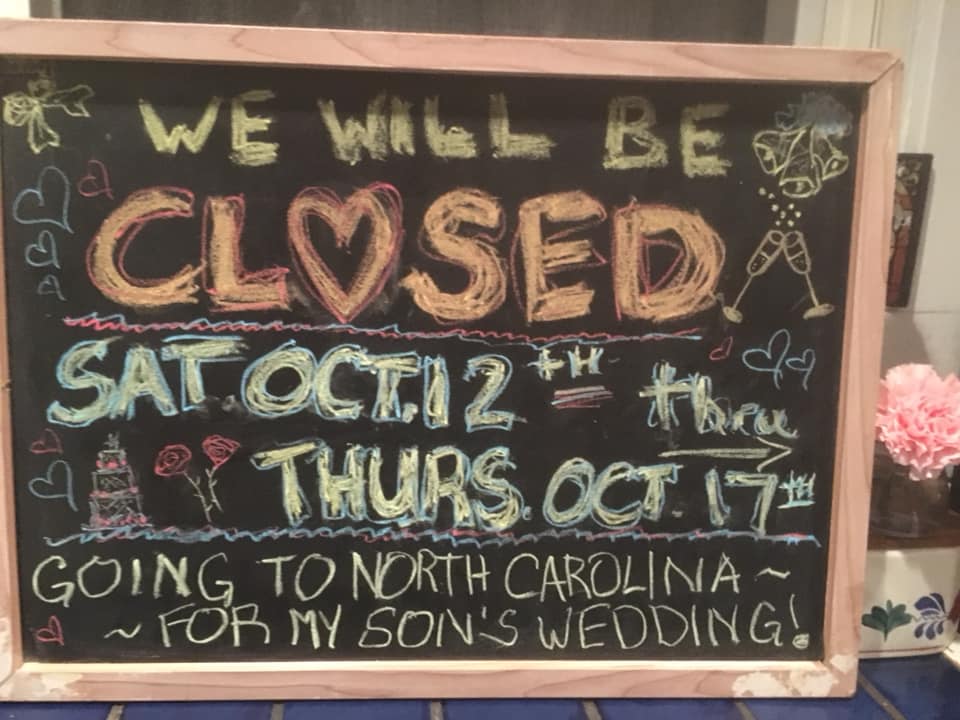 WE WILL BE
CLOSED
SAT OCT. 12TH thru
THURS. OCT. 17TH
GOING TO NORTH CAROLINA ~
~ FOR MY SON'S WEDDING!